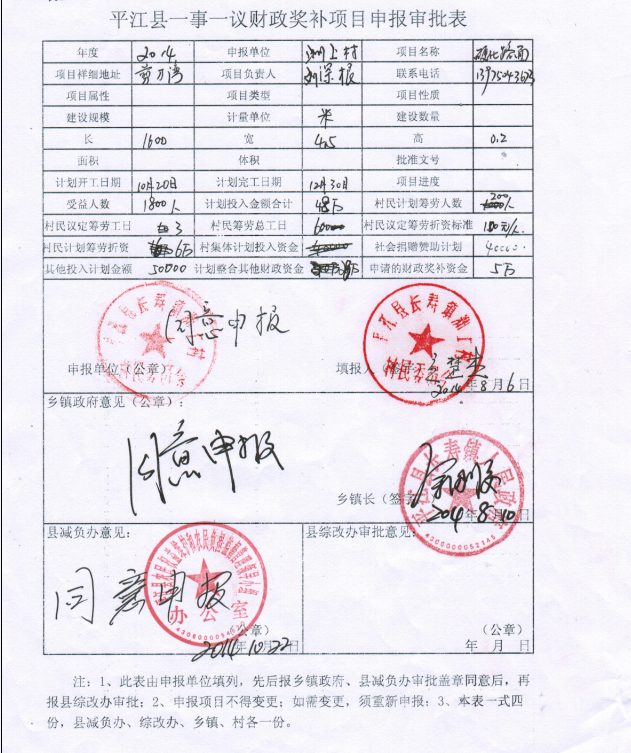 平江县一事一议财政奖补项目申报审批表
年度 2014 申报单位 上村 项目名称 硬化路面
项目详细地址 剪刀湾 项目负责人 深根 联系电话
项目属性 项目类型 项目性质
建设规模 计量单位 米 建设数量
长 1600 宽 4.5 高 0.2
面积 体积 批准文号
计划开工日期 10月20日 计划完工日期 12月30日 项目进度
受益人数 1800人 计划投入金额合计 48万 村民计划筹劳人数 200
村民议定筹劳工日 3 村民筹劳总工日 600 村民议定筹劳折资标准 100元/人
村民计划筹劳折资 6万 村集体计划投入资金 社会捐赠赞助计划 40000
其他投入计划金额 50000 计划整合其他财政资金 申请的财政奖补资金 5万
同意申报
平江县长寿镇 村
村民委员会
平江县长寿镇 村
村民委员会
申报单位(公章) 填报人
2014年8月6日
乡镇政府意见(公章):
同意申报
平江县长寿镇人民政府
4306000052145
乡镇长(签字)
2014年8月10日
县减负办意见: 县综改办审批意见:
同意申报
办公室
(公章) (公章)
2014年10.22日 年 月 日
注:1、此表由申报单位填列,先后报乡镇政府、县减负办审批盖章同意后,再
报县综改办审批;2、申报项目不得变更;如需变更,须重新申报;3、本表一式四
份,县减负办、综改办、乡镇、村各一份。